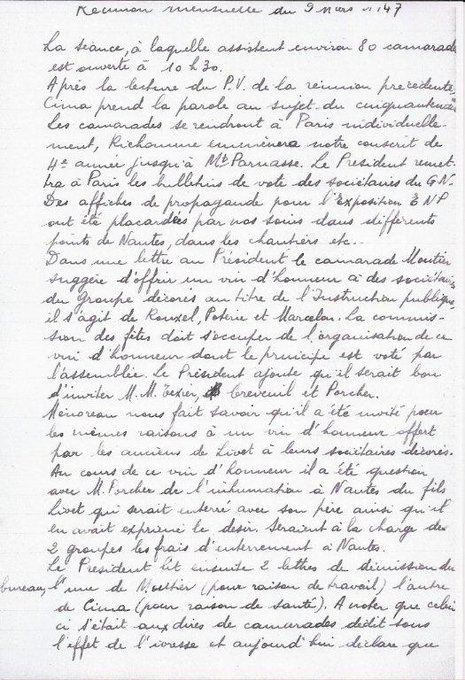 Réunion mensuelle du 9 Mars 1947
La séance, à laquelle assistent environ 80 camarades
est ouverte à 10 h 30.
Après la lecture du P.V. de la réunion précédente,
Cima prend la parole au sujet du cinquantenaire
Les camarades se rendront à Paris individuelle-
ment, Richomme emmènera notre conscrit de
4e année jusqu'à Mt Parnasse. Le Président remet-
tra à Paris les bulletins de vote des sociétaires du G.N.
Des affiches de propagande pour l'Exposition E N P
ont été placardées par nos soins dans différents
points de Nantes, dans les chantiers etc...
Dans une lettre au Président le camarade Moutier
suggère d'offrir un vin d'honneur à des sociétaires
du Groupe décorés au titre de l'Instruction publique,
il s'agit de Rouxel, Poterie et Marcelon. La commis-
sion des fêtes doit s'occuper de l'organisation de ce
vin d'honneur dont le principe est voté par
l'assemblée. Le Président ajoute qu'il serait bon
d'inviter M.M. Texier, Creveuil et Porcher.
Ménoreau nous fait savoir qu'il a été invité pour
les mêmes raisons à un vin d'honneur offert
par les anciens de Livet à leurs sociétaires décorés.
Au cours de ce vin d'honneur il a été question
avec M. Porcher de l'inhumation à Nantes du fils
Livet qui serait enterré avec son père ainsi qu'il
en avait exprimé le désir. Seraient à la charge des
2 groupes les frais d'enterrement à Nantes.
Le Président lit ensuite 2 lettres de démission du
bureau, l'une de Moutier (pour raison de travail) l'autre
de Cima (pour raison de santé). A noter que celui
ci s'était aux dires de camarades dédit sous
l'effet de l'ivresse et aujourd'hui déclare que